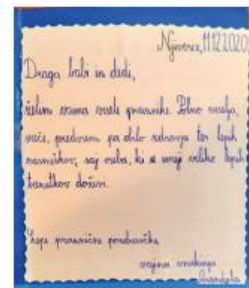 Njiverce, 11.12.2020
Draga babi in dedi,
želim vama vesele praznike. Polno veselja,
sreče, predvsem pa obilo zdravja ter lepih
nasmeškov, saj oseba, ki se smeji veliko lepih
trenutkov doživi.
Lepe praznične pozdravčke
vajina vnukinja